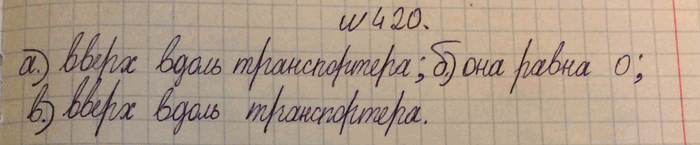 №420.
а.) вверх вдоль транспортера; б.) она равна 0;
в.) вверх вдоль транспортера.